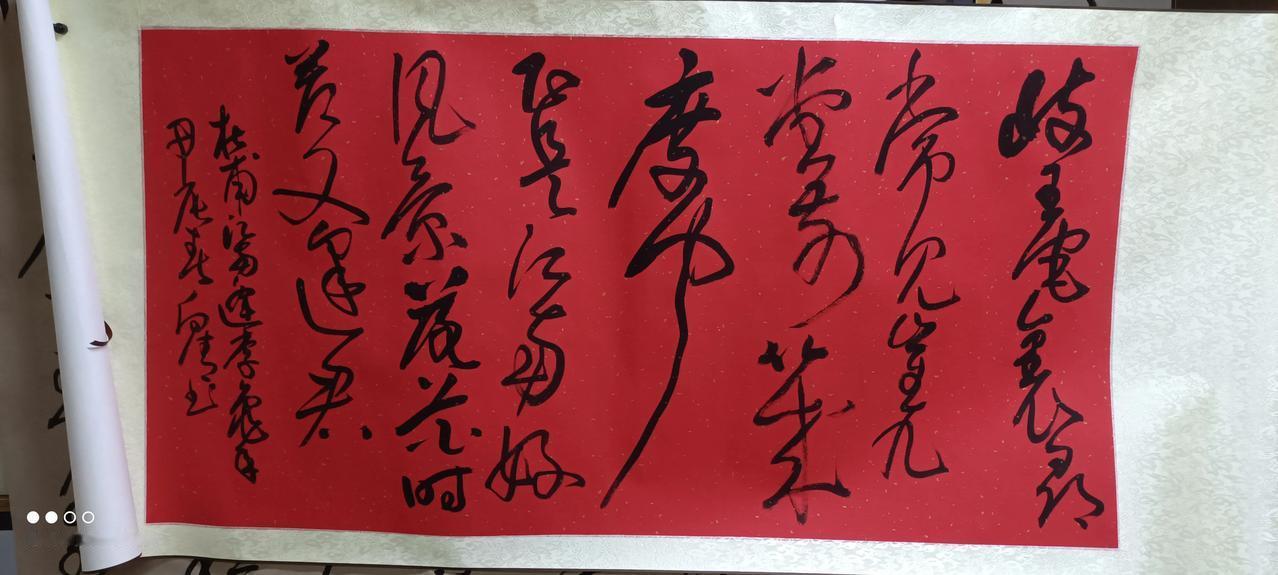 岐王宅裏尋
常見崔九
堂前幾
度聞
正是江南好
風景落花时
节又逢君
杜甫江南逢李龜年
甲辰春书